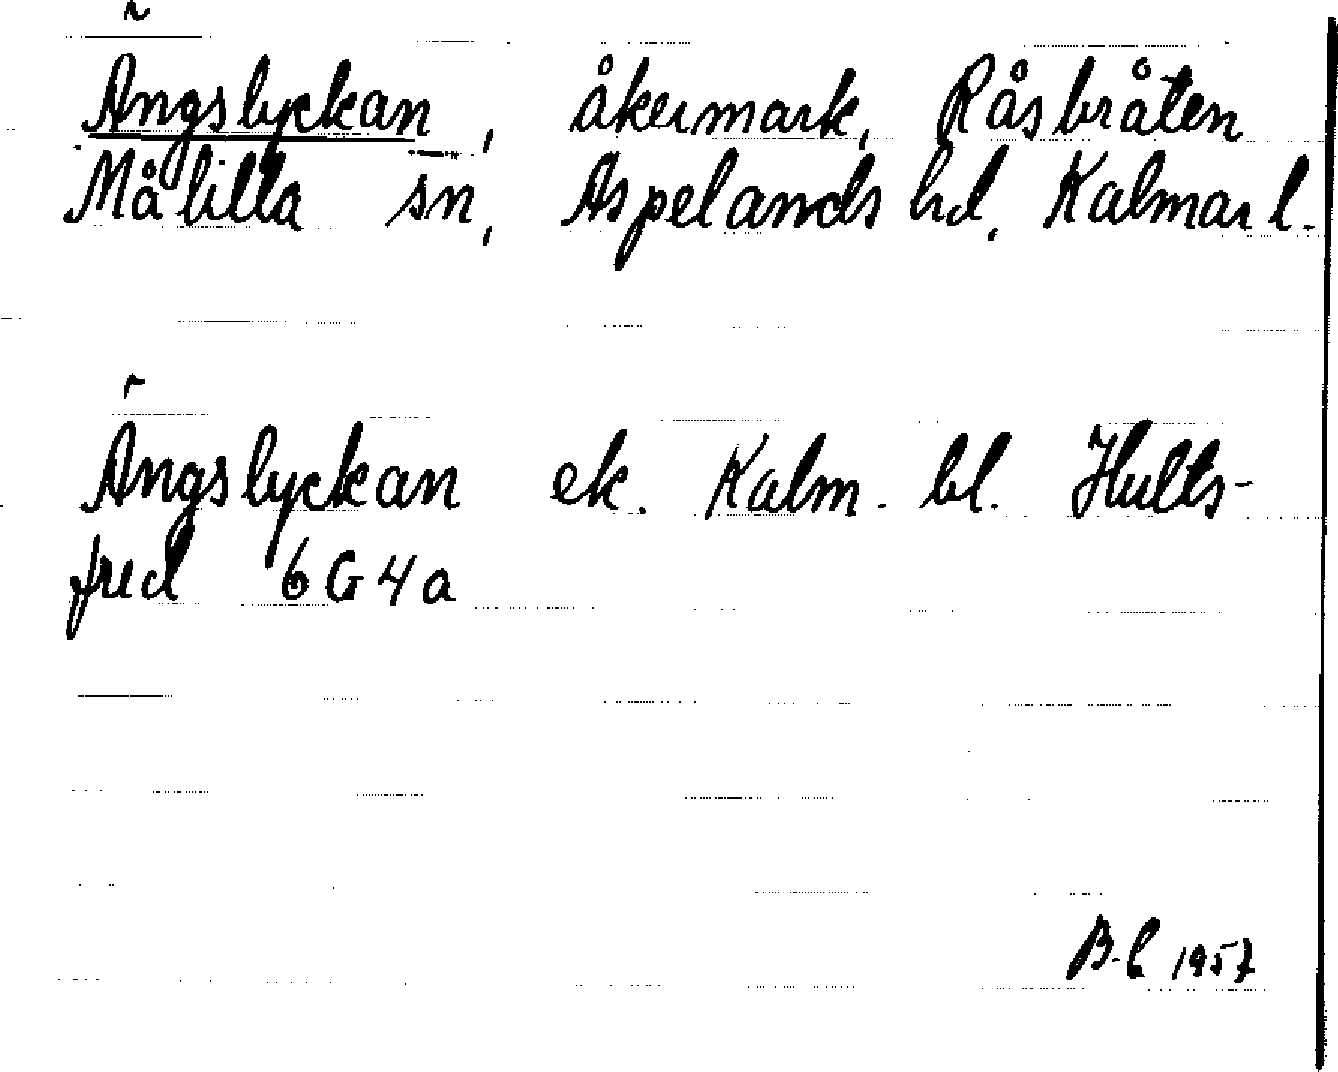 Ängslyckan, åkermark, Råsbråten
Målilla sn, Aspelands hd, Kalmar l.
Ängslyckan ek. Kalm. bl. Hults-
fred 6G4a
B-l 1957